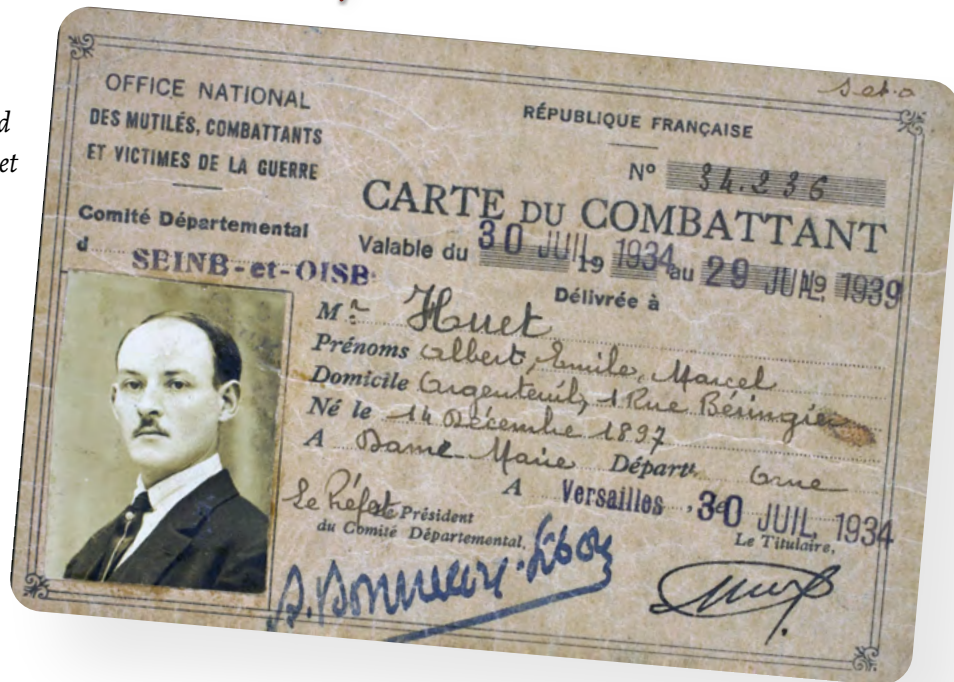 d
et
OFFICE NATIONAL
DES MUTILÉS, COMBATTANTS
ET VICTIMES DE LA GUERRE
Comité Départemental
d SEINE-et-OISE
RÉPUBLIQUE FRANÇAISE
Nº 34.236
CARTE DU COMBATTANT
Valable du 30 JUIL 19 1934 au 29 JUIL 19 1939
Délivrée à
Mr Huet
Prénoms Albert, Emile, Marcel
Domicile Argenteuil, 1 Rue Béringier
Né le 14 Décembre 1897
A Dame Marie Départt Orne
A Versailles, 30 JUIL. 1934
Le Préfet Président
du Comité Départemental,
Le Titulaire,